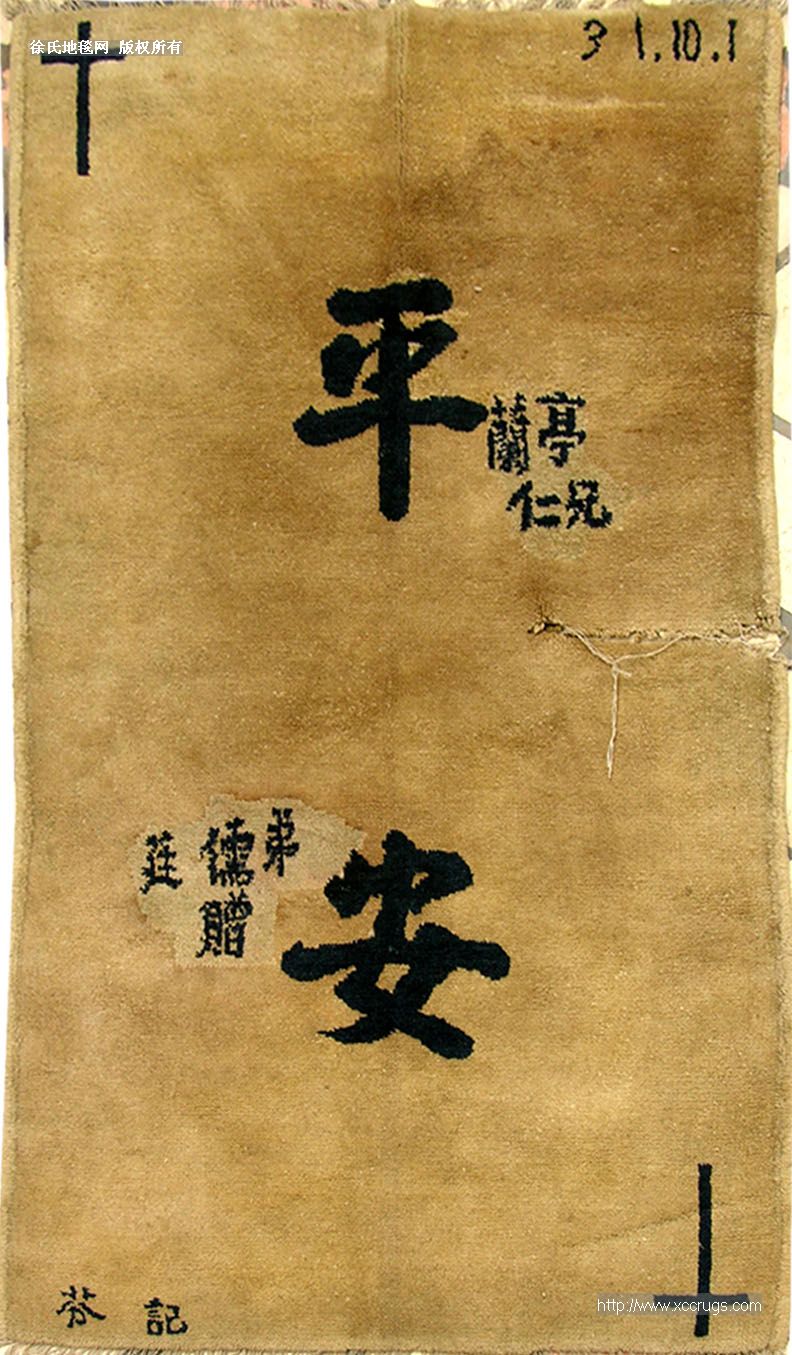 徐氏地毯网 版权所有
31.10.1
平
蘭亭
仁兄
弟
儒
贈
安
記
http://www.xccrugs.com